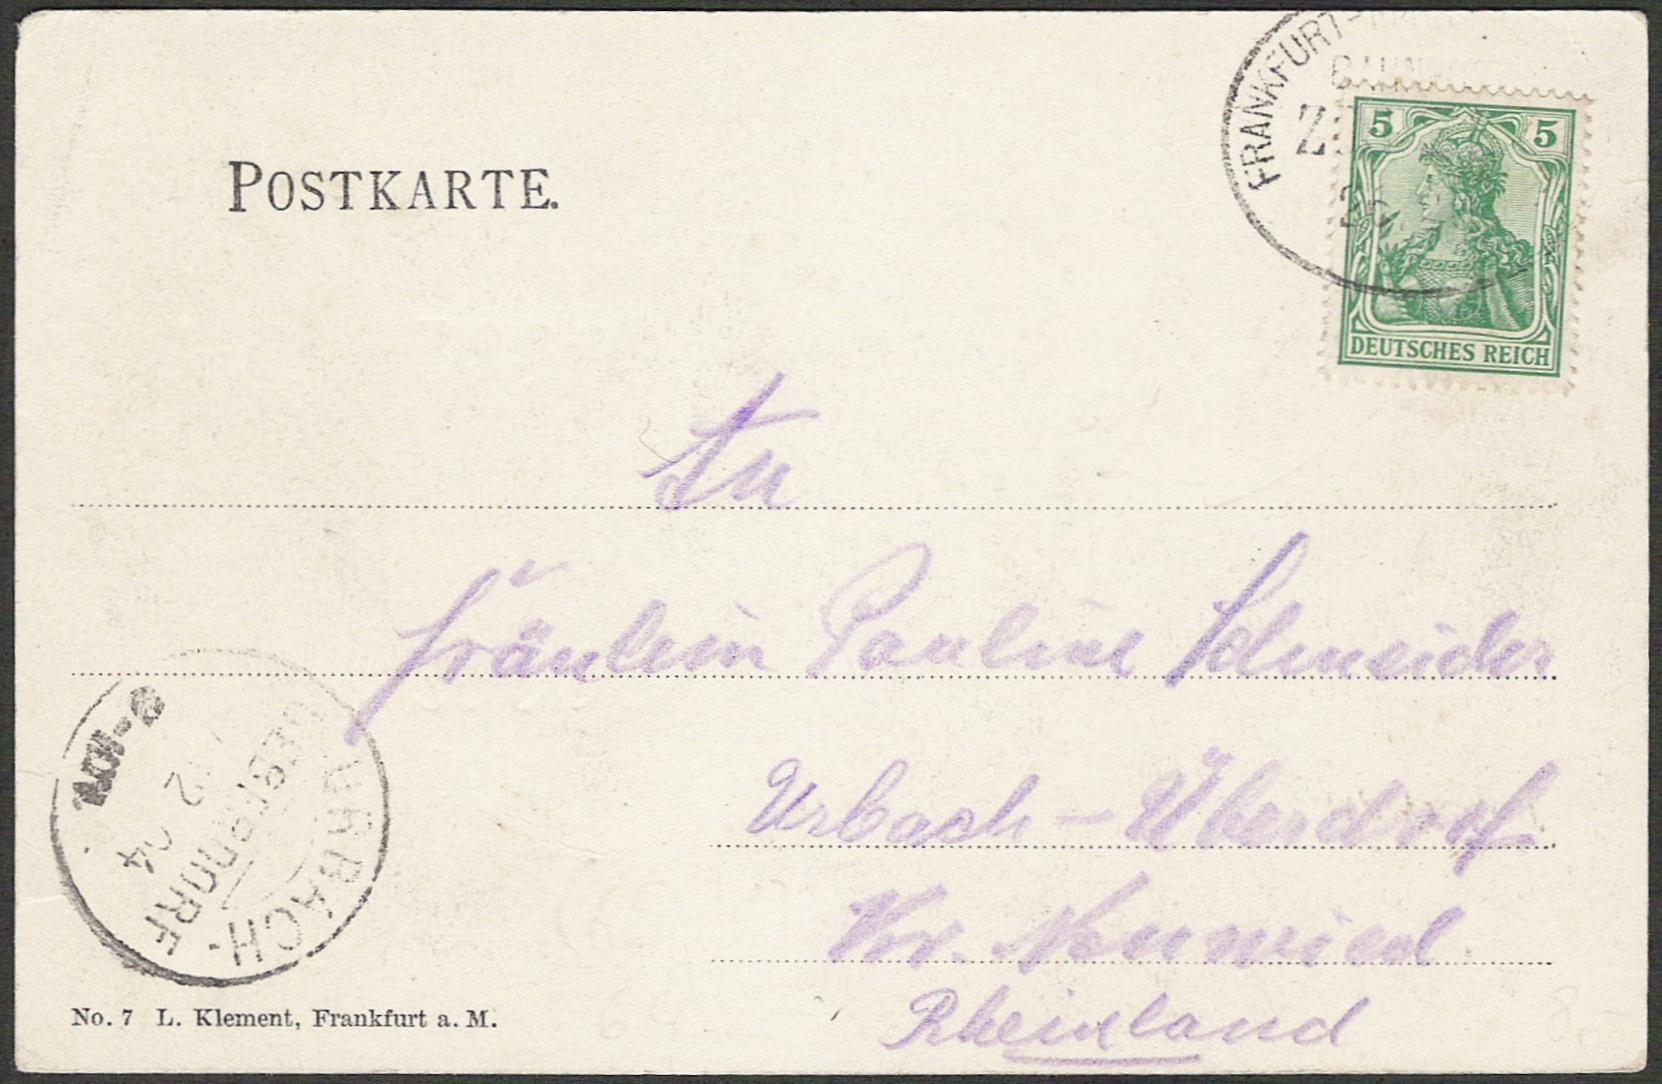 FRANKFURT-
5 5
DEUTSCHES REICH
POSTKARTE.
An
Fräulein Pauline Schneider
Urbach-Überdorf
Kr. Neuwied.
Rheinland
URBACH-
UEBERDORF
2 04
No. 7 L. Klement, Frankfurt a. M.